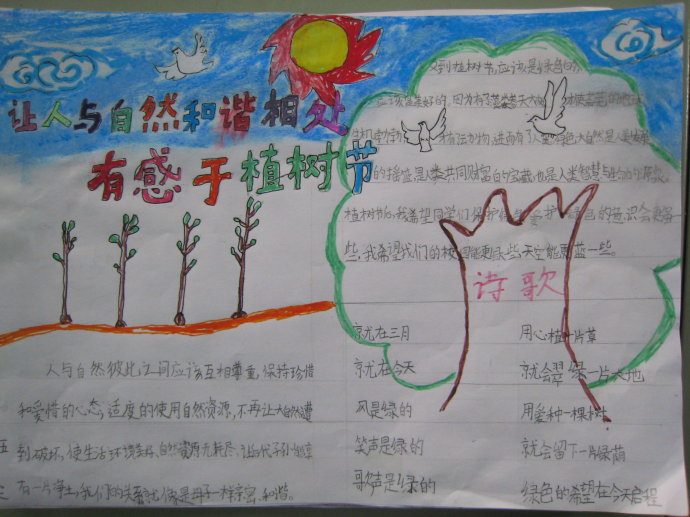 让人与自然和谐相处
有感于植树节
植树节应该是绿色的
应该是美好的,因为有了
才有活力物,进而有了人类,绿色大自然是人类
的摇篮是人类共同财富的宝藏,也是人类智慧与
植树节后,我希望同学们保护绿色爱护绿色的意识会更
些,我希望我们的校园能更绿些,天空能更蓝一些。
诗歌
就在三月
就在今天
风是绿的
笑声是绿的
歌声是绿的
用心植一片草
就会翠绿一片大地
用爱种一棵树
就会留下一片绿荫
绿色的希望在今天启程
人与自然彼此之间应该互相尊重,保持珍惜
和爱惜的心态,适度的使用自然资源,不再让大自然遭
到破坏,使生活环境美好、自然资源无耗尽,让后代子孙
有一片净土,我们的关系就像是母子一样亲密、和谐。